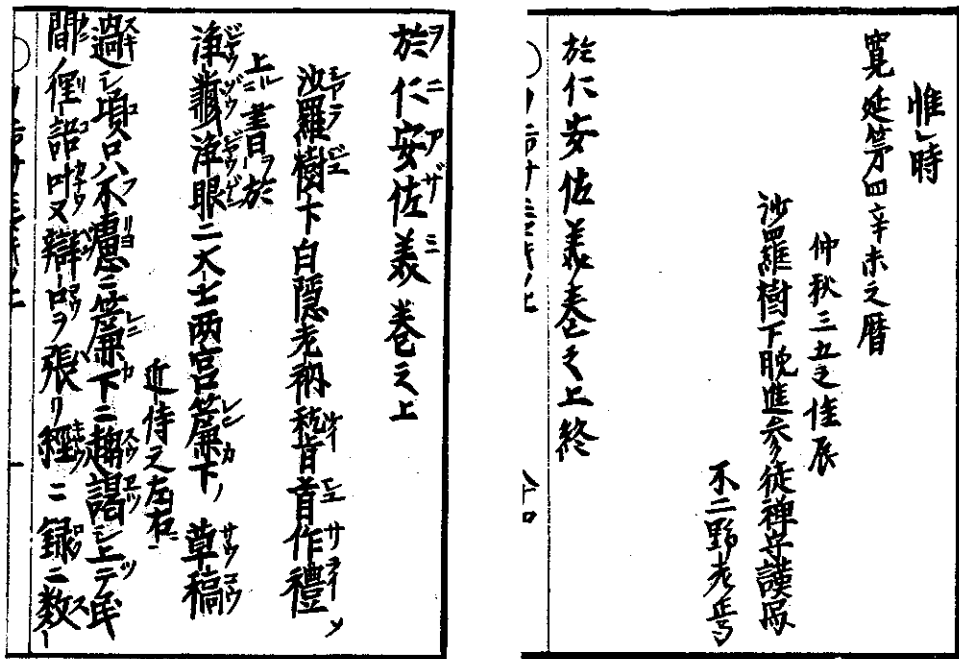 惟時
寛延第四辛未之暦
仲秋三五之佳辰
沙羅樹下晩進参徒禅守謹写
不二野老
於仁安佐美巻之上終
於仁安佐美巻之上
沙羅樹下白隠老衲稽首作禮
上書於
浄藏浄眼二大士两宮簾下ノ草稿
近侍之左右ニ
過シ頃ロハ不慮ニ簾下ニ趨謁シ上テ民
間ノ俚語叶又辯口ヲ張リ經ニ録ニ数